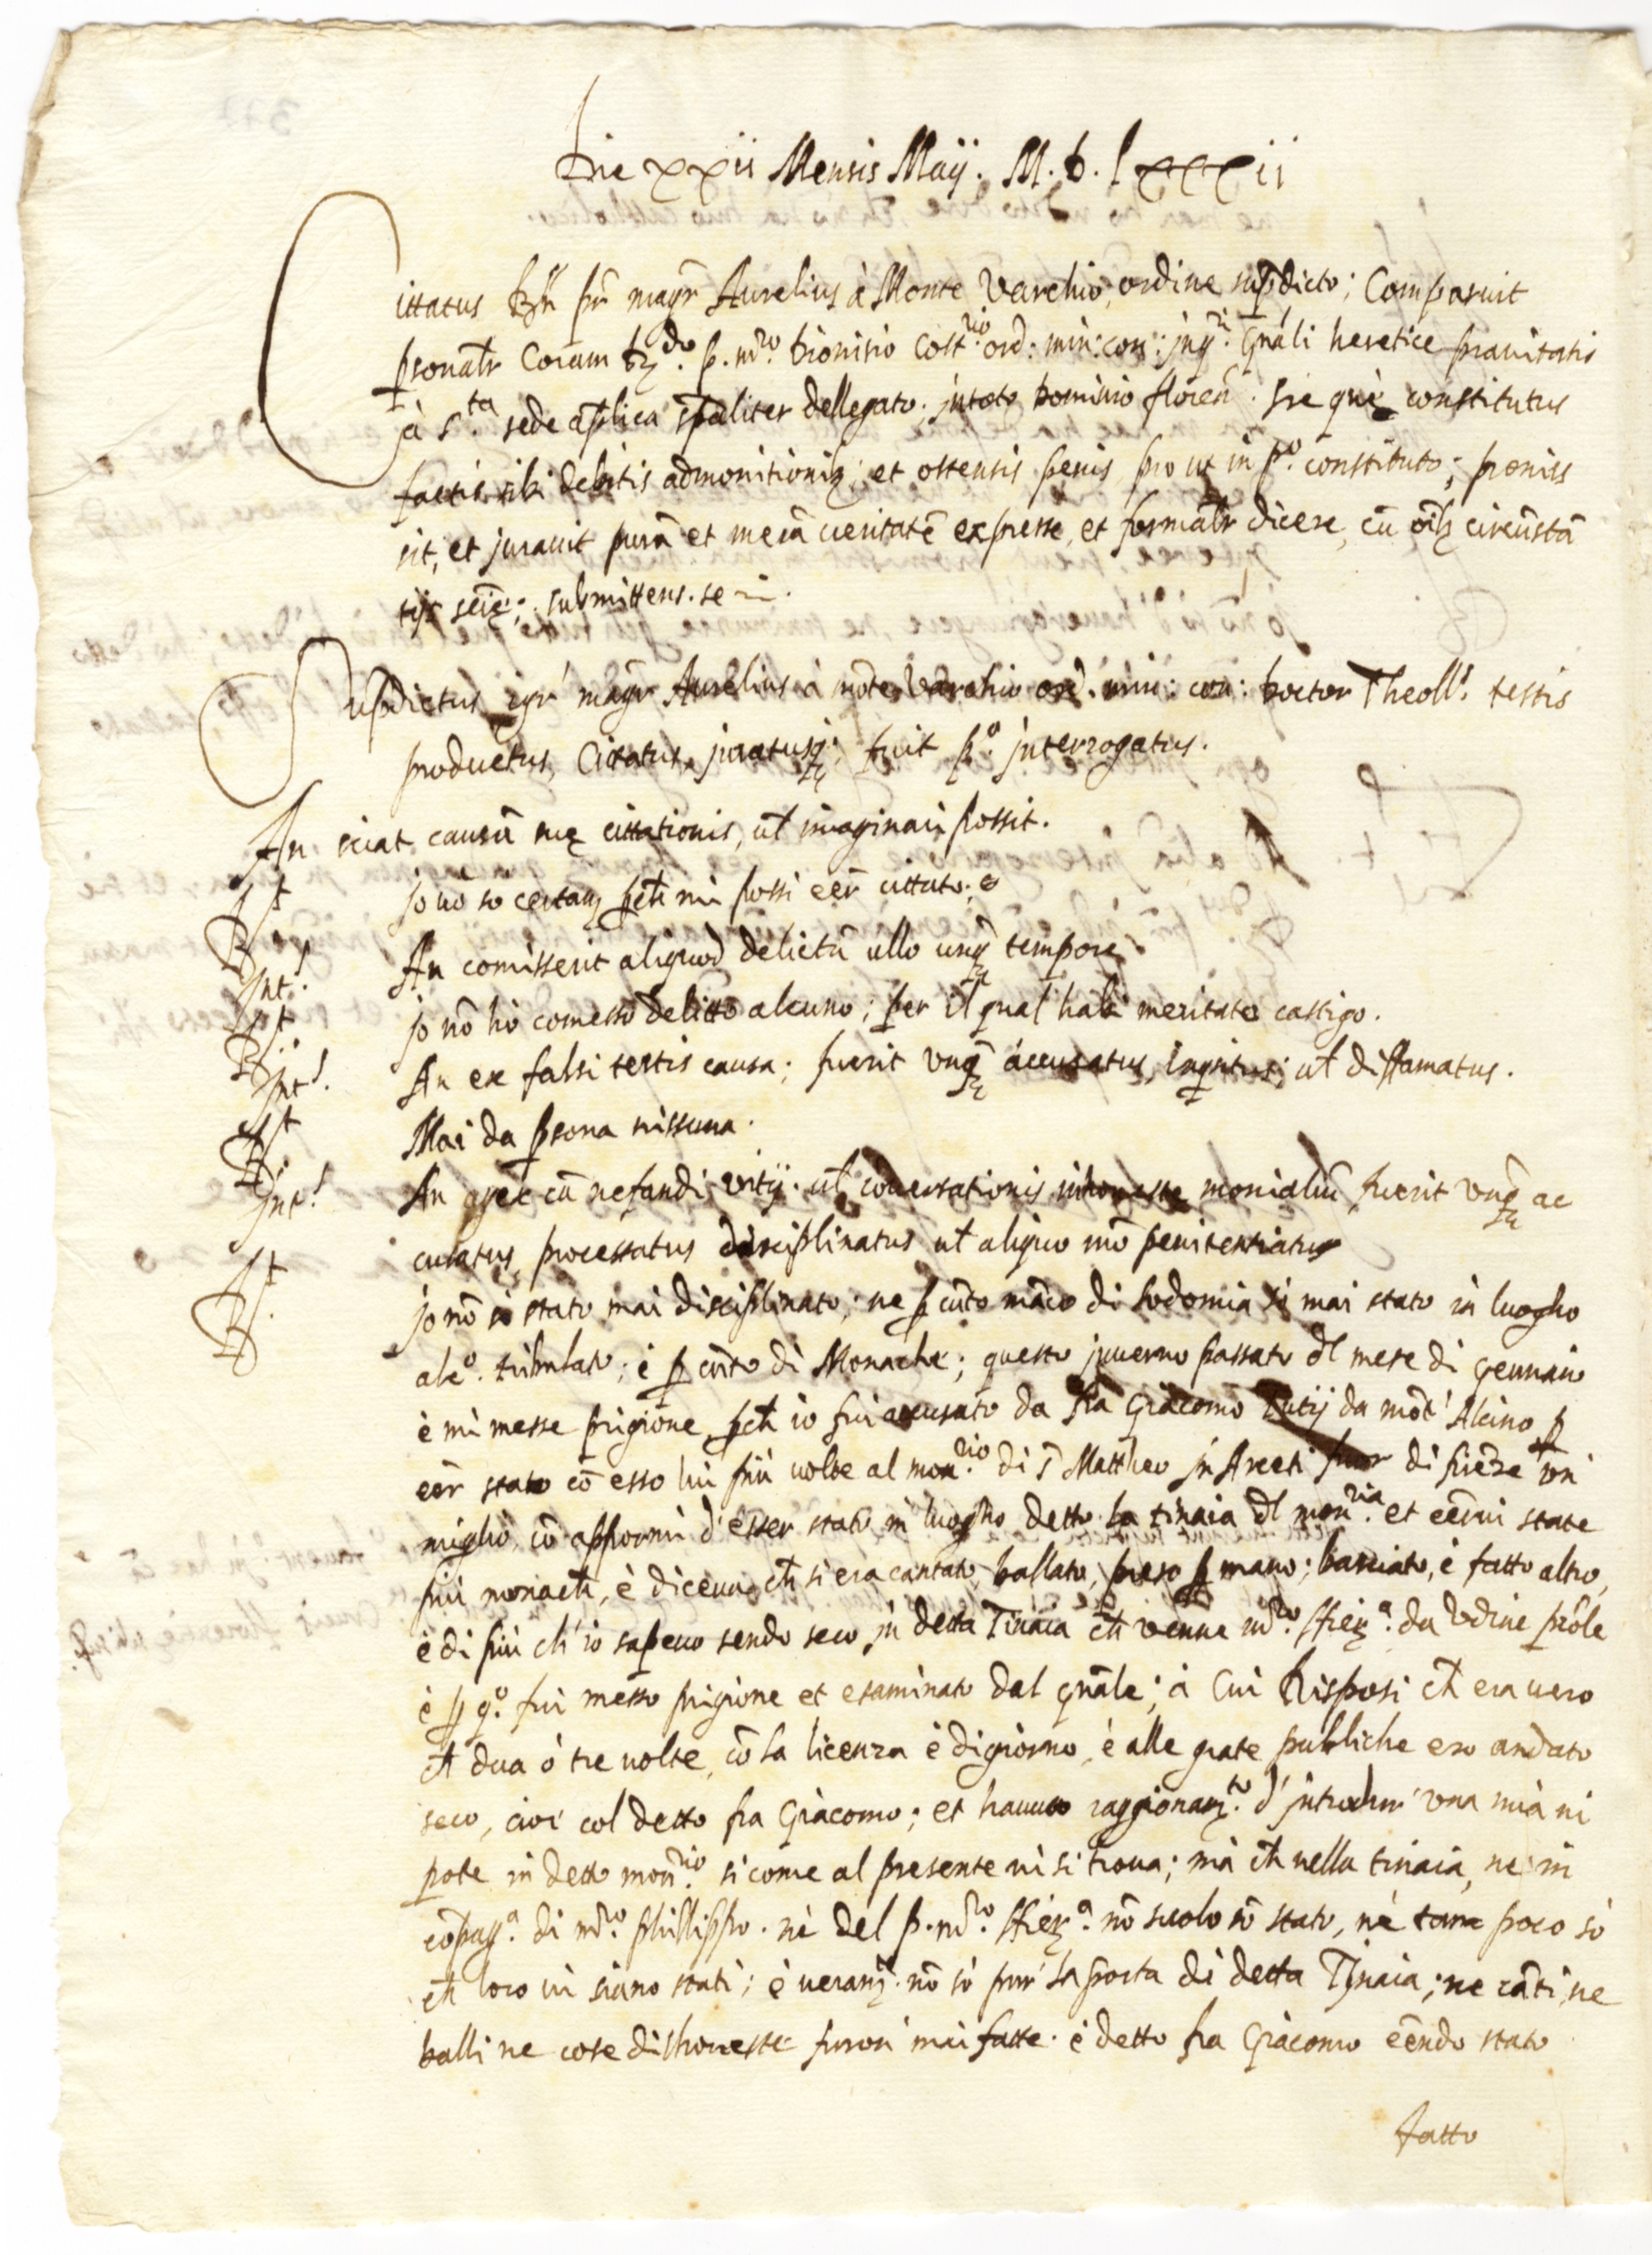 Die xxii Mensis Maij. M. D. lxxxii
Cittatus Rr̄ pr̄ magr̄ Aurelius à Monte Varchio, ordine sup̄dicto; Comparuit
p̱sonalr̄ Coram Rdo. p. mro. Dionisio Costrio. ord: min: con: jnqri. gn̄ali heretice pravitatis
à S.ta sede ap̄lica sp̄aliter dellegato, jn toto Dominio floren̄. Sicque constitutus
factis sibi debitis admonitionibȝ, et ostensis penis, pro ut in po. constituto; promis
sit, et juravit purā et merā veritatē expresse, et formalr̄ dicere, cū oībȝ circūstā
tijs
submittens. se
Sup̄dictus magr̄ Aurelius à mōte Varchio ord. min: con: Doctor Theolls. testis
productus, Citatus, juratusqȝ, fuit po. jnterrogatus.
An sciat causā suę cittationis, ut̄ imaginari possit.
Rt jo nō so certamȝ pch̄ mi possi eēr cittato.
Ints. An comisserit aliquod delictū ullo unq̄ tempore
Rt. jo nō hò comesso delitto alcuno; per il qual habi meritato castigo.
Ints. An ex falsi testis causa; fuerit vnq̄ accusatus, inqsitus; ut̄ diffamatus.
Rt Mai da p̱sona nissuna.
Ints. An nefandi vitij. ut̄ cōversationis inhoneste monialiū, fuerit vnq̄ ac
cusatus, processatus disciplinatus ut̄ aliquo mō penitentiatus
Rt. jo nō sō stato mai disciplinato; ne p̱ cūto māco di sodomia sō mai stato in luogho
alco. tribulato; è p̱ cōto di Monache; questo jnverno passato dl̄ mese di gennaio
è mi messe prigione, pch̄ io fui accusato da fra Giacomo Tutij da mōt' Alcino p̱
eēr stato cō esso lui più volte al monrio. di S. Mattheo jn Arceti fuor di firēze vn
miglio, cō apponmi d'esser stato in luogho detto la tinaia dl̄ monria. et eērvi state
più monach̄, è diceva ch̄ si era cantato, ballato, preso p̱ mano; basciato, è fatto altro,
è di più ch' io sapevo sendo seco jn detta Tinaia ch̄ venne mro. da Vdine
è p̱ qo. fui messo prigione et esaminato dal gn̄ale; à Cui Risposi ch̄ era vero
ch̄ dua ò tre volte, cō la licenza è di giorno, è alle grate pubbliche ero andato
seco, cioè col detto fra Giacomo; et havuto raggionamto. d' jntrodur vna mia ni
pote in detto monrio. si come al presente vi si trova; mà ch̄ nella tinaia, ne in
cōpaga. di mro. phillippo. nè del p. mro. nō sō stato, nè tam poco sò
ch̄ loro vi siano stati; è veramȝ. nō sò pur' la porta di detta Tinaia; ne cāti, ne
balli ne cose dishoneste furon' mai fatte. è detto fra Giacomo eēndo stato
fatto